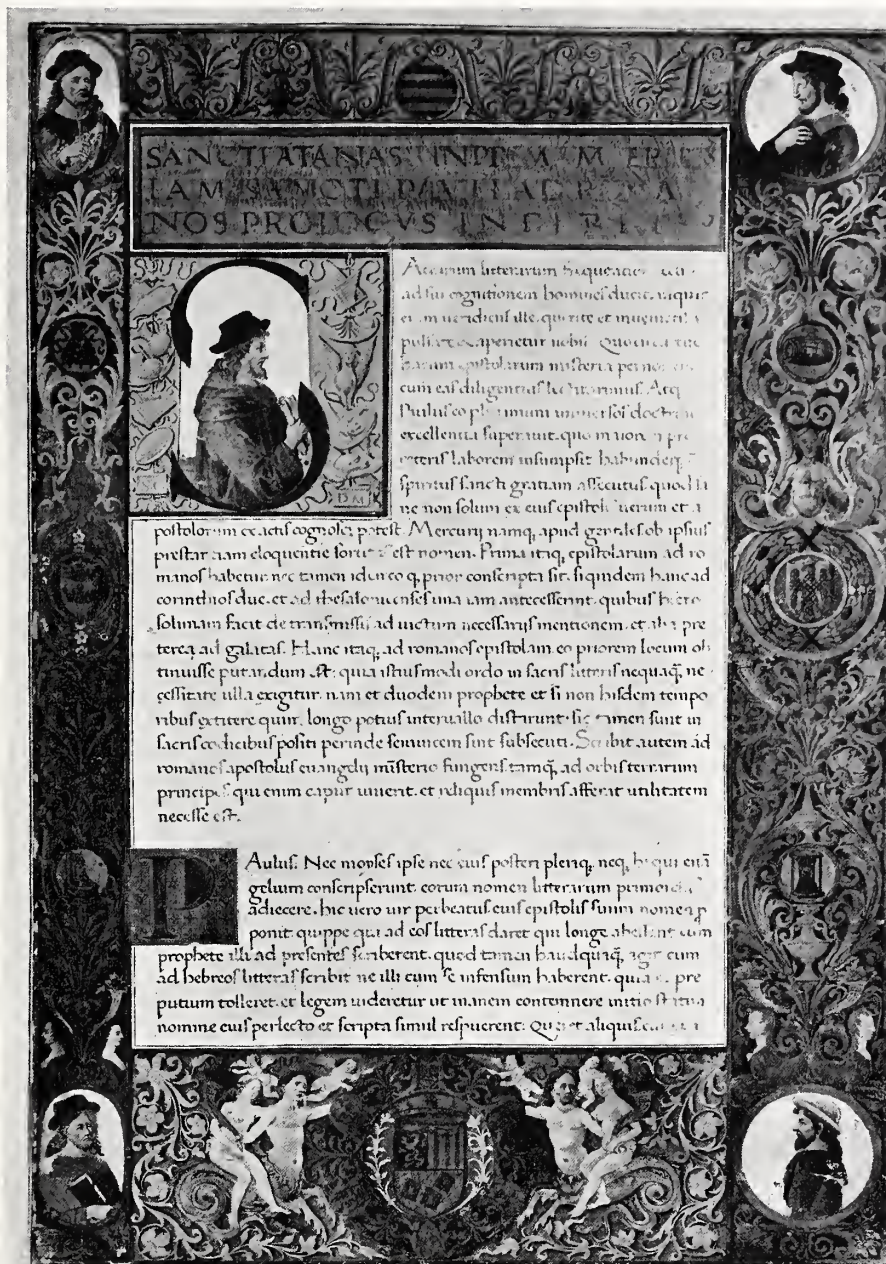 SANCTI ATANAS IN PRIMAM EPIS
LAM SANCTI PAVLI AD ROMA
NOS PROLOGVS INCIPIT
S
Acrarum litterarum frequens
ad sui cognitionem homines ducit. namque
ueridicus ille. querite et inuenietis
pulsate et aperietur uobis. Quocirca
harum epistolarum misteria
cum eas diligentius lectitarimus. Atq
Paulus eo plurimum uniuersos doctrine
excellentia superauit. quo in non
ceteris laborem insumpsit habundeq
spiritus sancti gratiam assecutus. quod sa
ne non solum ex eius epistolis uerum et a
D M
postolorum ex actis cognosci potest. Mercurij namq, apud gentiles ob ipsius
prestantiam eloquentie sortitus est nomen. Prima itaq, epistolarum ad ro
manos habetur nec tamen idcirco q, prior conscripta sit. siquidem hanc ad
corinthios due. et ad thesalonicenses una iam antecesserint. quibus hiero
solimam facit de transmissis ad uictum necessarijs mentionem. et alia pre
terea ad galatas. Hanc itaq, ad romanos epistolam eo priorem locum ob
tinuisse putandum est: quia istiusmodi ordo in sacris litteris nequaq̃, ne
cessitate ulla exigitur. nam et duodem prophete et si non hisdem tempo
ribus extitere quin longo potius interuallo distarunt. sic tamen sunt in
sacris codicibus positi perinde seuuicem sint subsecuti. Scribit autem ad
romanos apostolus euangelij misterio fungens. tamq̃, ad orbis terrarum
principes. qui enim caput uiuerit. et reliquis membris afferat utilitatem
necesse est.
P
Aulus. Nec moyses ipse nec eius posteri pleriq, neq, hi qui euã
gelium conscripserunt. eorum nomen litterarum primordia
adiecere. hic uero uir perbeatus eius epistolis suum nomen p
ponit. quippe qui ad eos litteras daret qui longe abessent cum
prophete illi ad presentes scriberent. quod tamen haudquaq̃, agit cum
ad hebreos litteras scribit ne illi cum se infensum haberent. quia pre
putium tolleret. et legem uideretur ut inanem contemnere initio statim
nomine eius perlecto et scripta simul respuerent. Queret aliquis